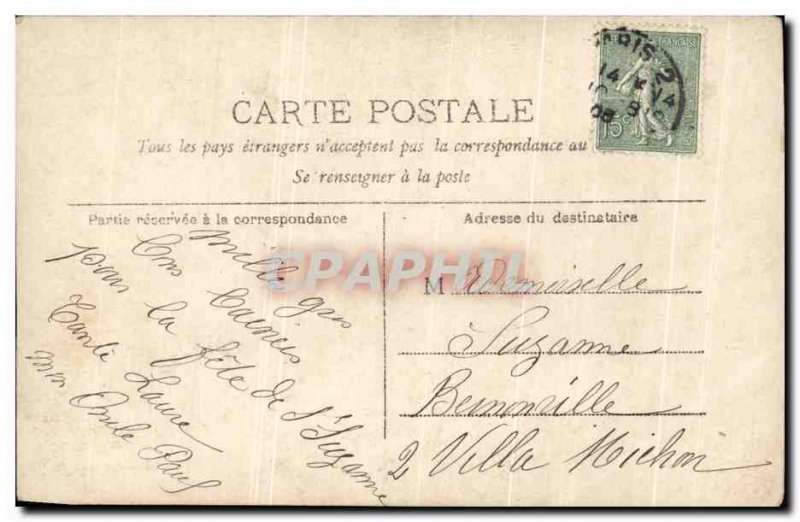 CARTE POSTALE
Tous les pays étrangers n'acceptent pas la correspondance au
Se renseigner à la poste
Partie réservée à la correspondance
Adresse du destinataire
mille gros
pour la fête de Ste Suzanne
Tante Laure
mon Oncle Paul
Mademoiselle
Suzanne
2 Villa Michon
PARIS 2
14
15c
CPAPHIL